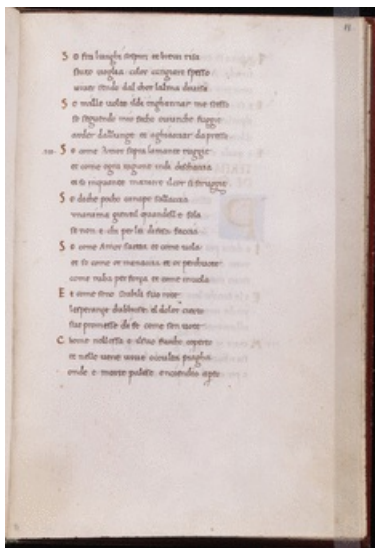 S o fra lunghi sospiri et brevi risa
stato voglia color cangiare spesso
viver stando dal cor lalma divisa
S o mille volte il di ingannar me stesso
so seguendo mio foco ovunche fugge
arder dallunge et aghiacciar da presso
S o come Amor sopra la mente rugge
et come ogni ragione indi discaccia
et so in quante maniere il cor si strugge
S o di che poco canape sallaccia
unanima gentil quandelle sola
se non e chi per lei difesa faccia
S o come Amor saetta et come vola
et so come or menaccia et or perchuote
come ruba per forza et come invola
E t come sono instabili sue rote
lesperanze dubbiose el dolor certo
sue promesse di fe come son vote
C home nellossa il suo fuocho coperto
et nelle vene vive occulta piagha
onde e morte palese encendio aperto